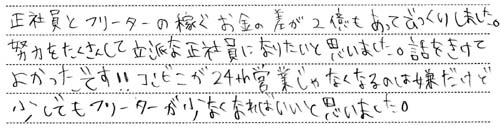 正社員とフリーターの稼ぐお金の差が2億もあってびっくりしました。
努力をたくさんして立派な正社員になりたいと思いました。話をきけて
よかったです!!コンビニが24h営業じゃなくなるのは嫌だけど
少しでもフリーターが少なくなればいいと思いました。